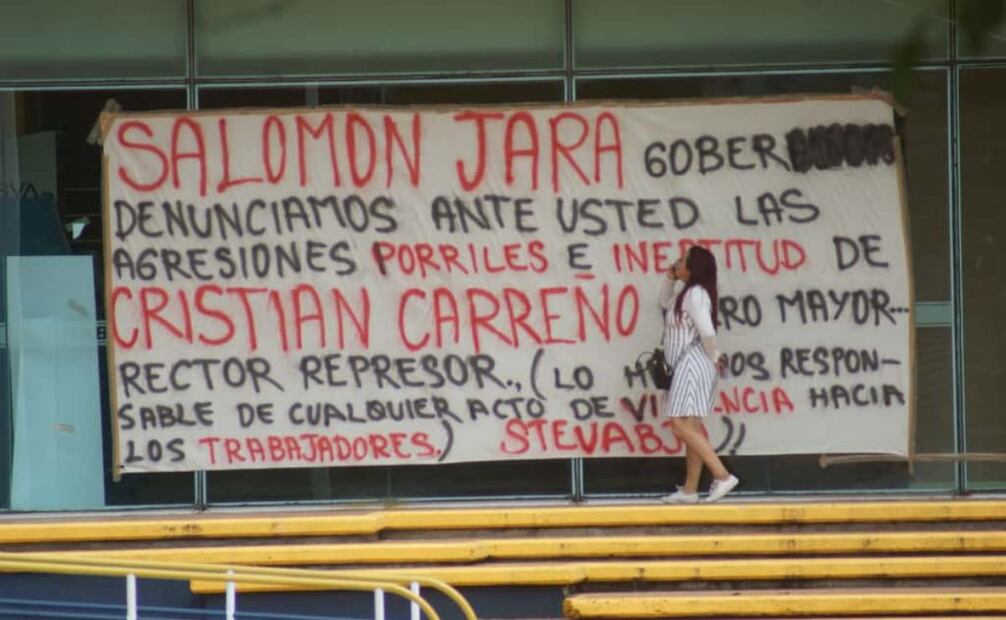 SALOMON JARA GOBER
DENUNCIAMOS ANTE USTED LAS
AGRESIONES PORRILES E INEPTITUD DE
CRISTIAN CARREÑO MAYOR...
RECTOR REPRESOR., (LO RESPON-
SABLE DE CUALQUIER ACTO DE HACIA
LOS TRABAJADORES.)